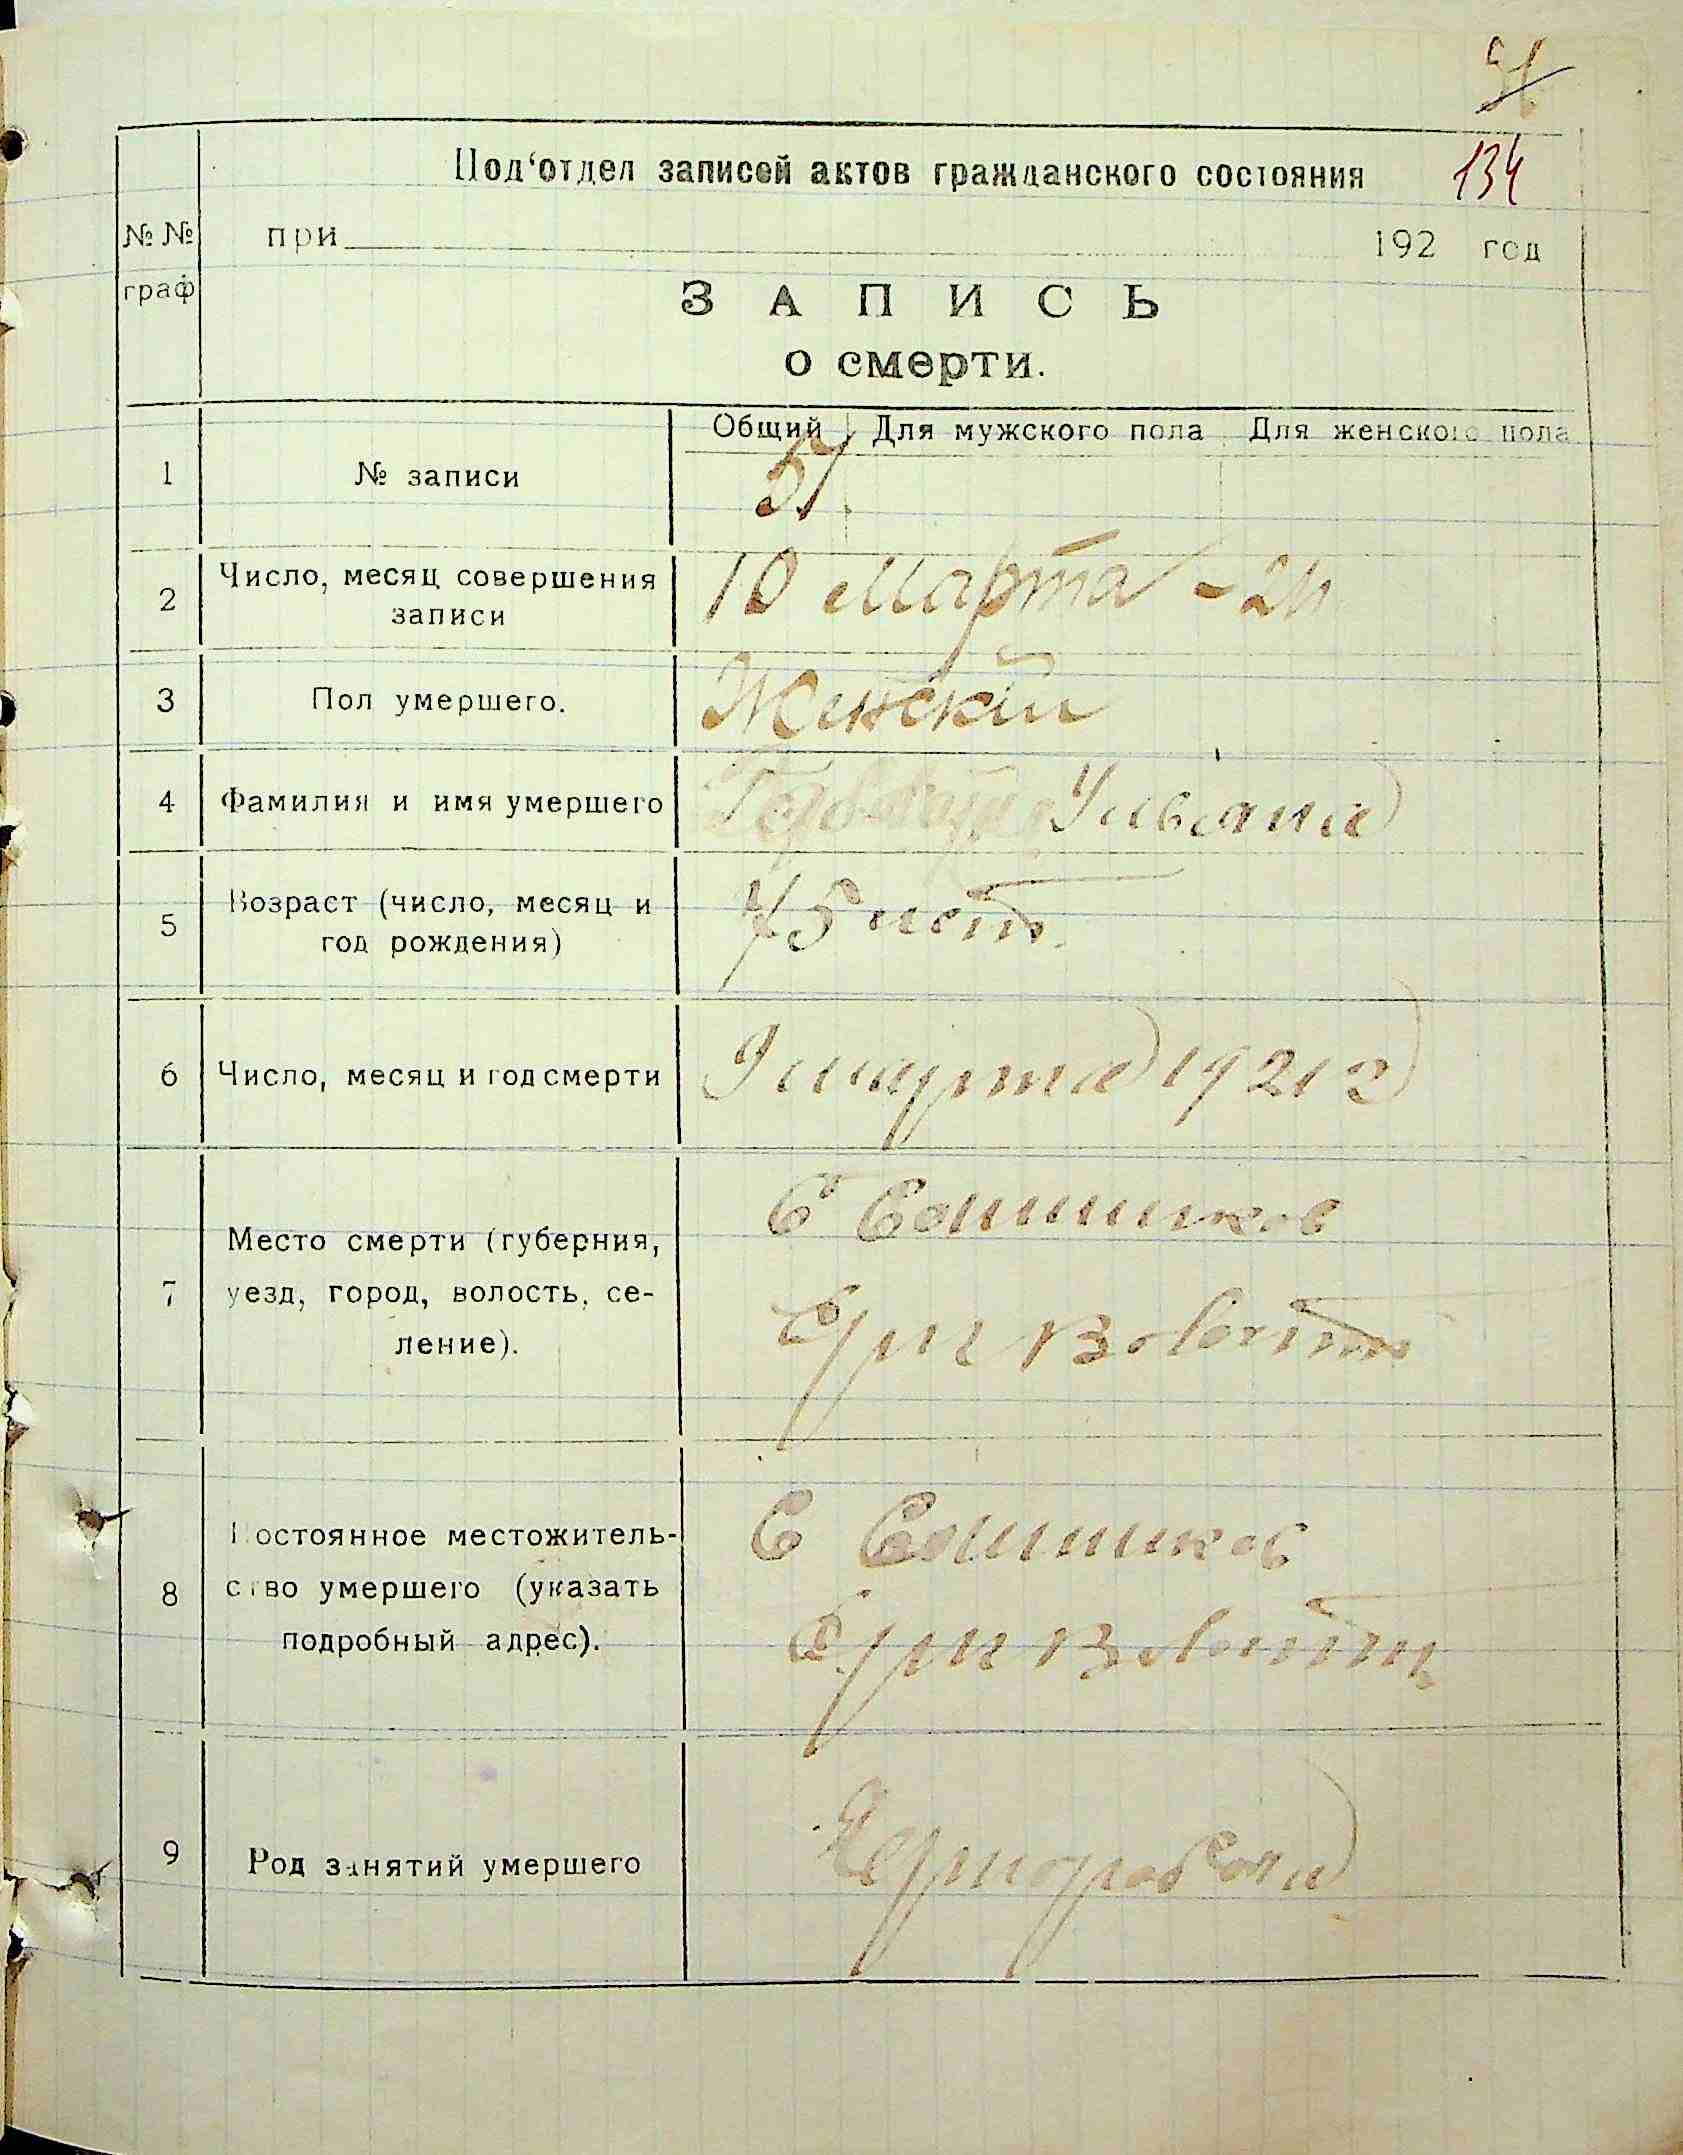 134
Под'отдел записей актов гражданского состояния
№ №
граф
при 192 год
ЗАПИСЬ
о смерти.
Общий Для мужского пола Для женского пола
1 № записи 51
2 Число, месяц совершения
записи
10 Марта - 21
3 Пол умершего. Женский
4 Фамилия и имя умершего Ульяна
5 Возраст (число, месяц и
год рождения)
75 лет
6 Число, месяц и год смерти 9 марта 1921 г
7 Место смерти (губерния,
уезд, город, волость, се-
ление).
С Сошников
волости
8 Постоянное местожитель-
ство умершего (указать
подробный адрес).
С Сошников
волости
9 Род занятий умершего